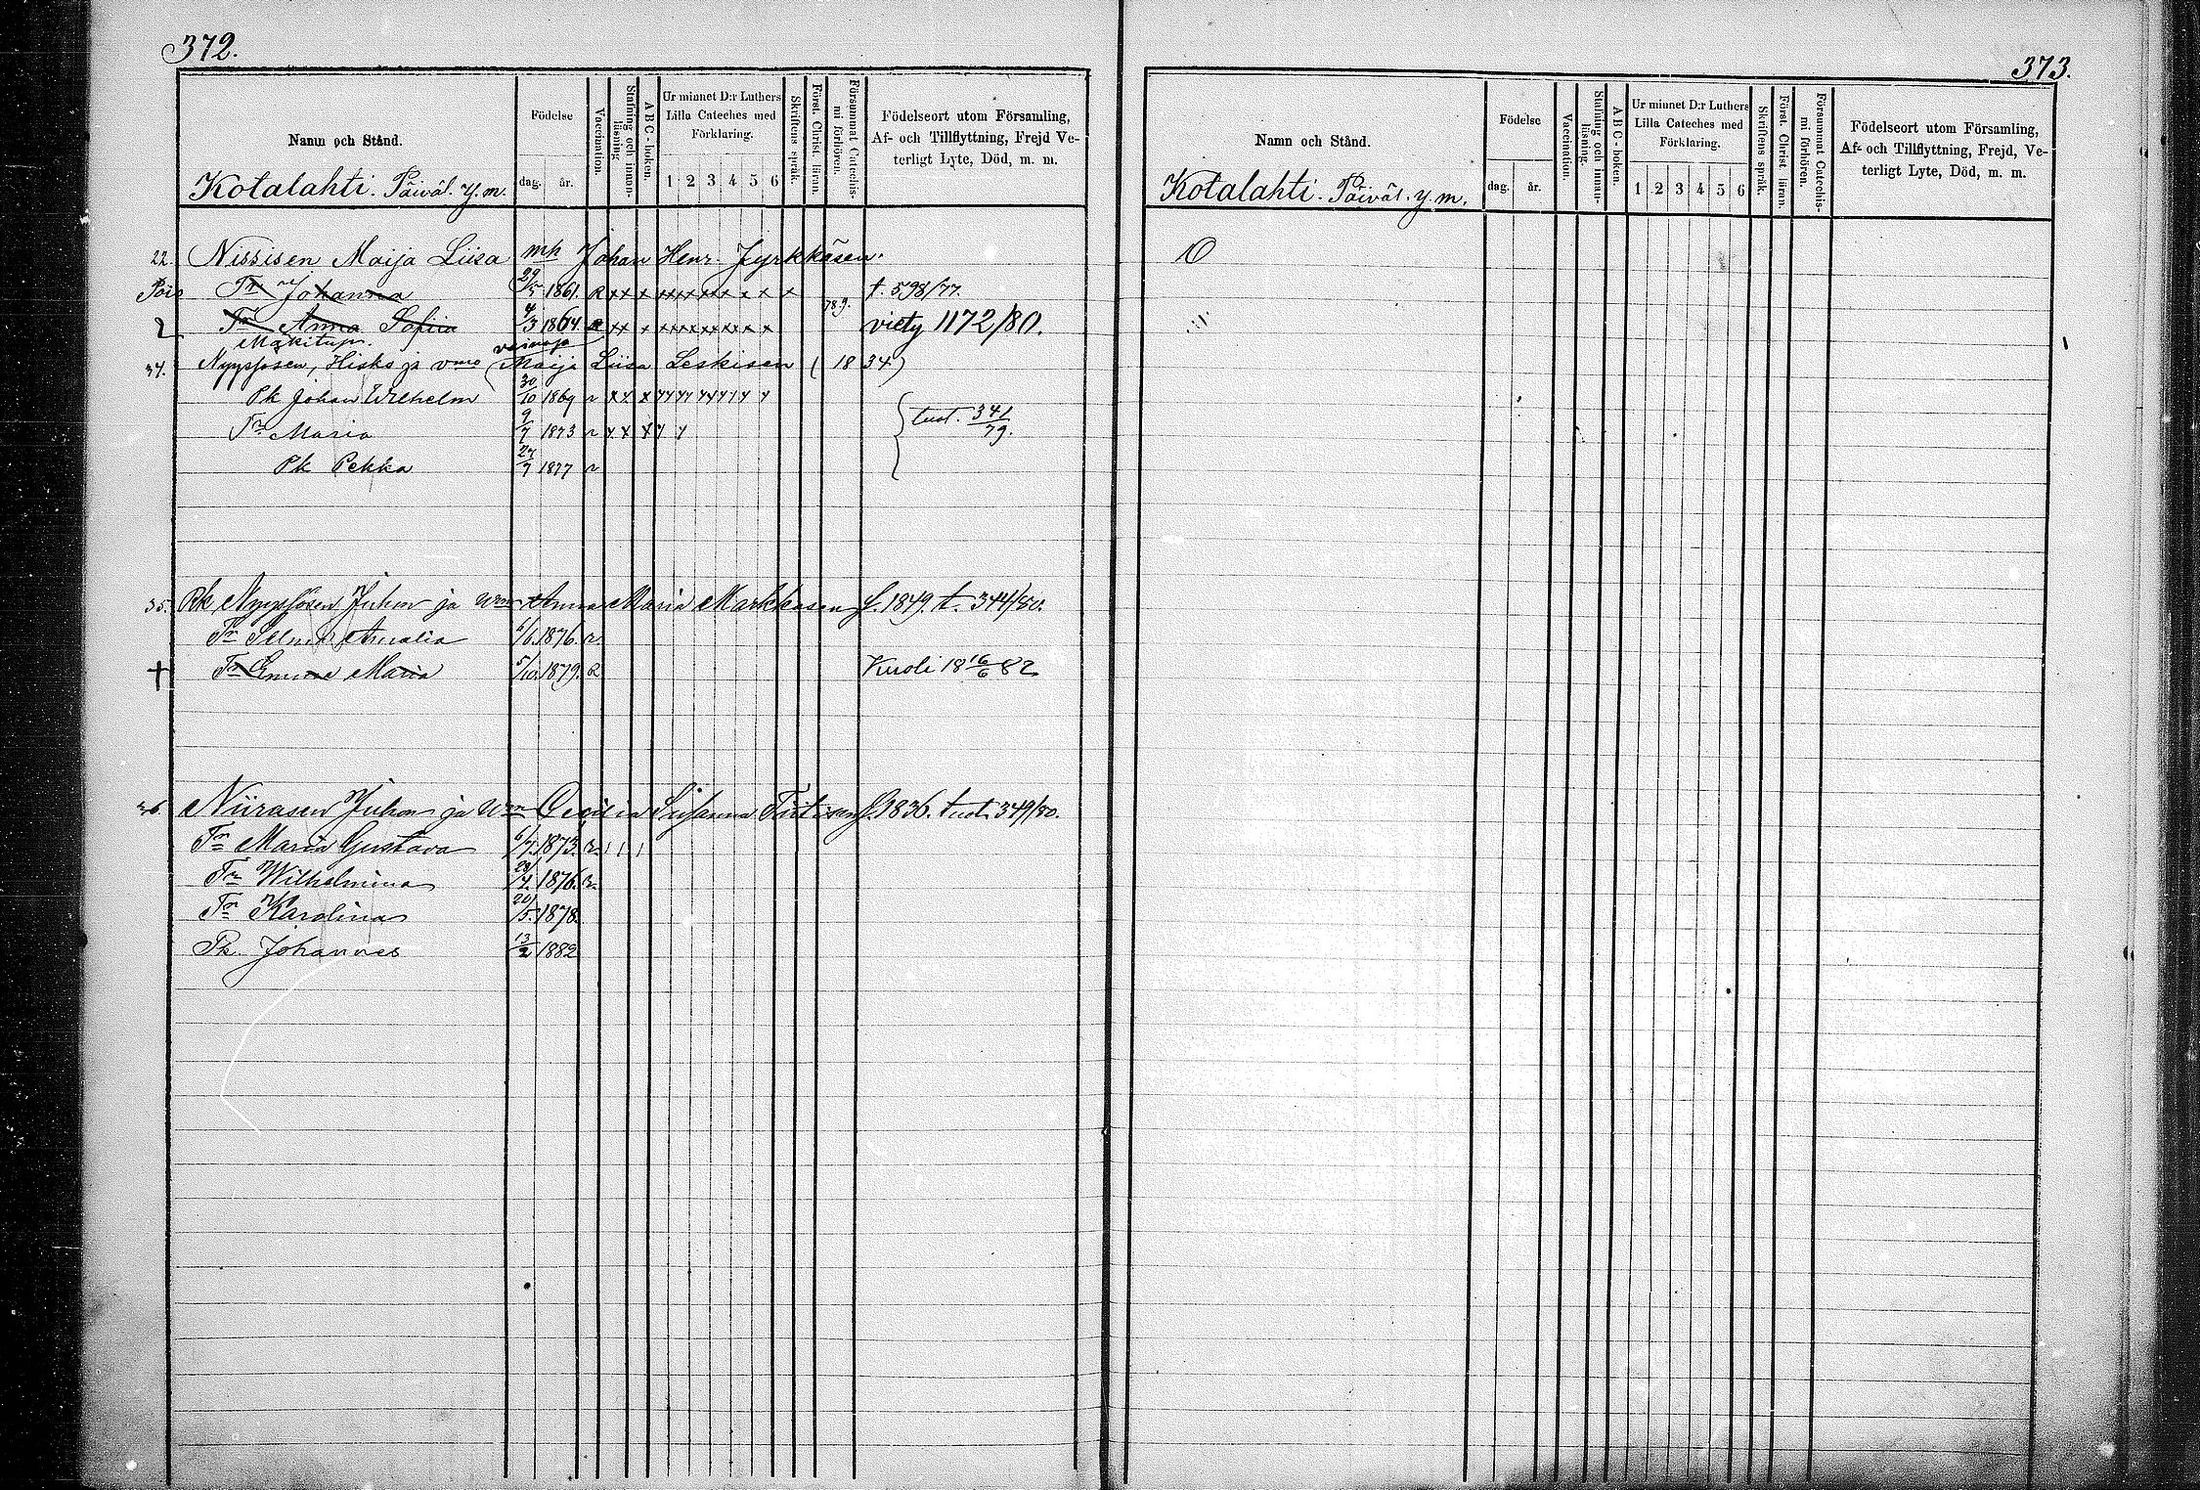 372.
Namn och Stånd.
Födelse
dag. år.
Vaccination.
Stafning och innan-läsning
ABC-boken.
Ur minnet D:r Luthers Lilla Cateches med Förklaring.
1 2 3 4 5 6
Skriftens språk.
Först. Christ. läran.
Försummat Catechis-mi förhören.
Födelseort utom Församling, Af- och Tillflyttning, Frejd Ve-terligt Lyte, Död, m. m.
Kotalahti. Päiväl. y. m.
22. Nissisen Maija Liisa mh Johan Henr. Jyrkkäsen.
Pois Tr Johanna 29/5 1861. R x x x x x x x x x x x t. 598/77.
2 Tr Anna Sofiia 4/3 1864. R x x x x x x x x x x x 78 9. viety 1172/80.
Mäkitup. vainaja
34. Nyyssösen, Hisko ja vmo (Maija Liisa Leskisen (1834)
Pk Johan Wilhelm 30/10 1869 r x x x
Tr Maria 9/7 1873 r x x x
tuot. 341/79.
Pk Pekka 27/7 1877 r
35. Rk Nyyssösen Juhon ja Wmo Anna Maria Markkasen f. 1849. t. 344/80.
Tr Selma Amalia 6/6. 1876. r.
+ Tr Emma Maria 5/10. 1879. R Kuoli 18 16/6 82
Niirasen Juhon ja Wmo Cecilia Susanna Tirtisen f. 1836. tuot. 349/80.
Tr Maria Gustava 6/7. 1873. r. / / /
Tr Wilhelmina 1876. r.
Tr Karolina 20/5. 1878.
Pk. Johannes 13/2 1882
373.
Namn och Stånd.
Födelse
dag. år.
Vaccination.
Stafning och innan-läsning.
ABC-boken.
Ur minnet D:r Luthers Lilla Cateches med Förklaring.
1 2 3 4 5 6
Skriftens språk.
Först. Christ läran.
Försummat Catechis-mi förhören.
Födelseort utom Församling, Af- och Tillflyttning, Frejd, Ve-terligt Lyte, Död, m. m.
Kotalahti. Päiväl. y. m.